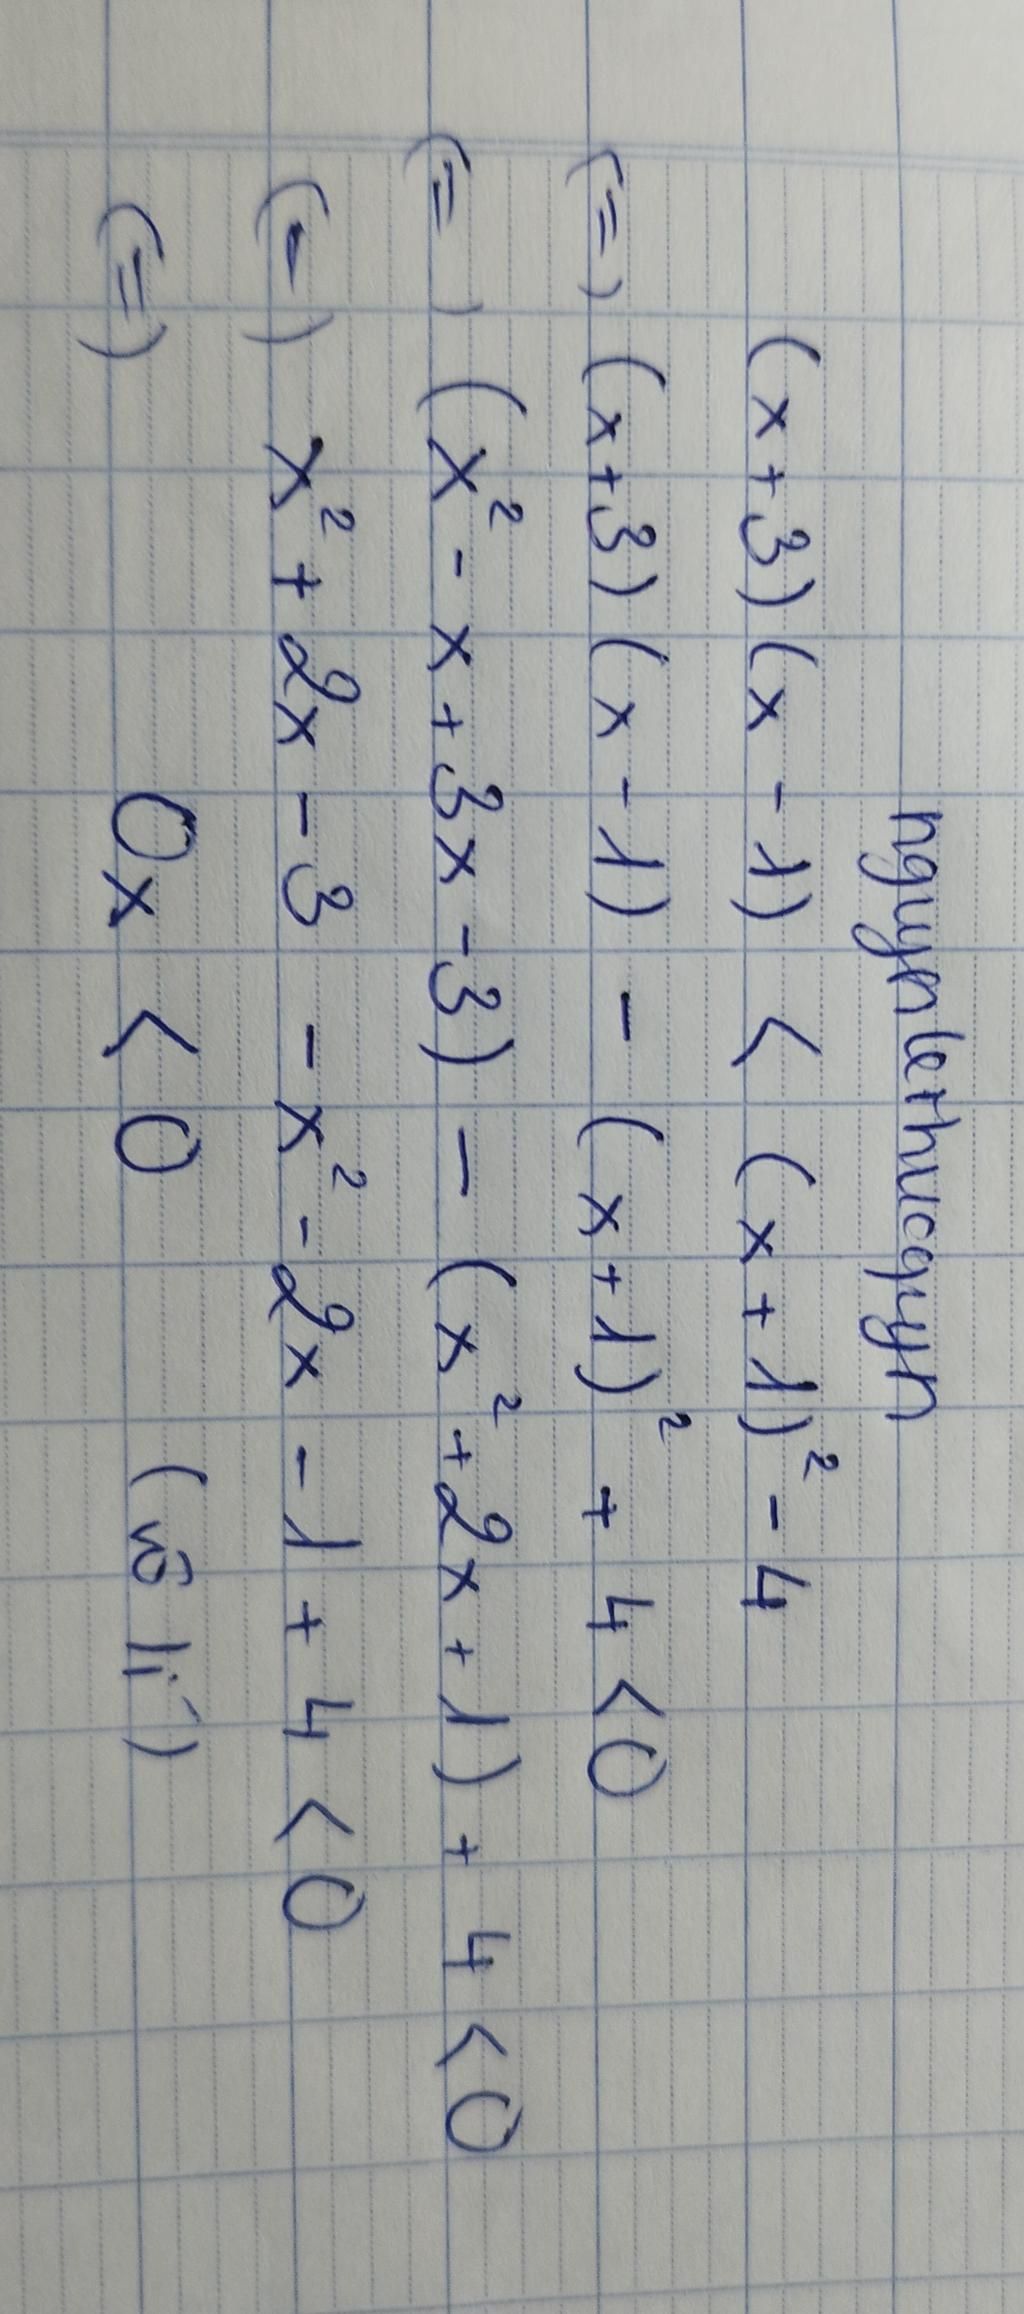 nguynlethucqyn
(x+3)(x-1) < (x+1)² - 4
(=) (x+3)(x-1) - (x+1)² + 4 <0
(=) (x² - x + 3x - 3) - (x² + 2x + 1) + 4 <0
(=) x² + 2x - 3 - x² - 2x - 1 + 4 <0
(=) 0x < 0 (vô lí)